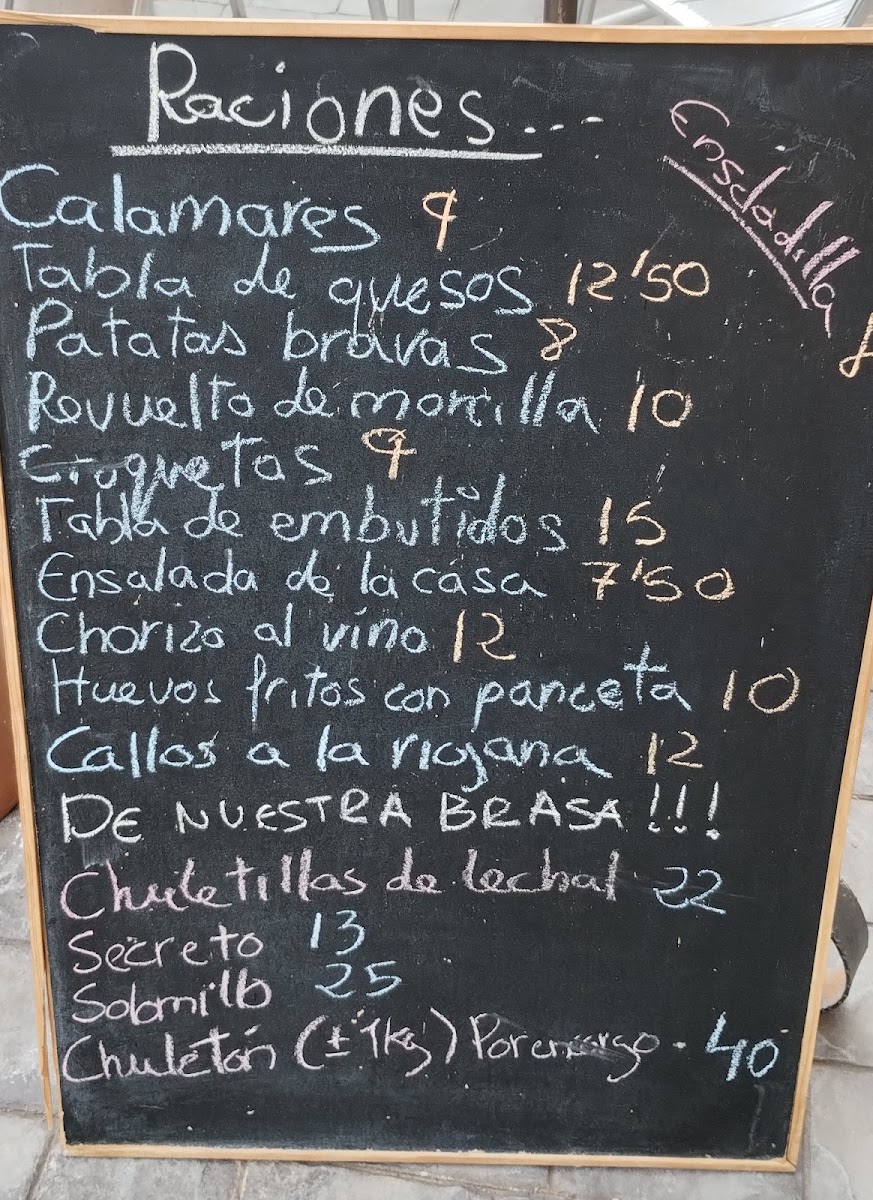 Raciones...
Ensdadilla
Calamares 9
Tabla de quesos 12'50
Patatas bravas 8
Revuelto de morcilla 10
Croquetas 9
Tabla de embutidos 15
Ensalada de la casa 7'50
Chorizo al vino 12
Huevos fritos con panceta 10
Callos a la riojana 12
DE NUESTRA BRASA!!!
Chuletillas de lechal 22
Secreto 13
Solomillo 25
Chuletón (± 1kg) Por encargo - 40